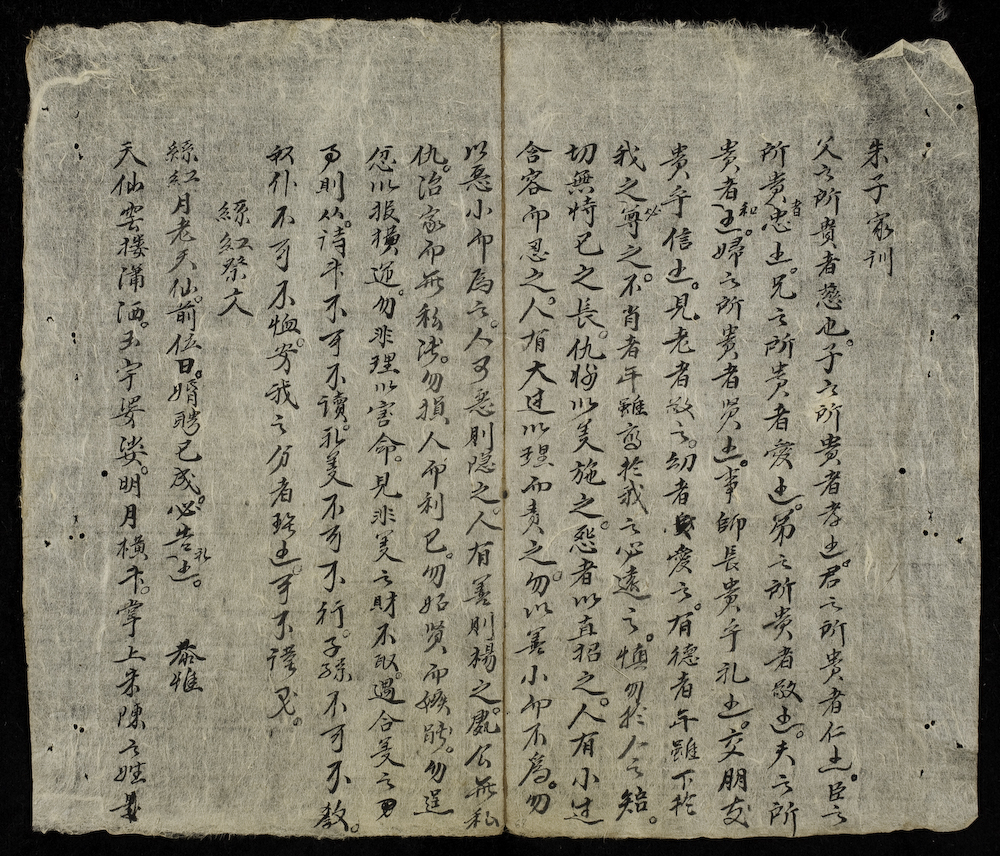 朱子家训
父之所貴者慈也。子之所貴者孝也。君之所貴者仁也。臣之
所貴者忠也。兄之所貴者愛也。弟之所貴者敬也。夫之所
貴者和也。婦之所貴者贤也。事師長貴乎礼也。交朋友
貴乎信也。見老者敬之。幼者愛之。有德者年雖下於
我之必尊之。不肖者年雖高於我之必遠之。慎勿於人之短。
切無恃己之長。仇者以義施之。怨者以直招之。人有小过
含容而忍之。人有大过以理而責之。勿以善小而不為。勿
以惡小而為之。人有惡則隐之。人有善則楊之。處公無私
仇。治家而無私法。勿損人而利己。勿妬贤而嫉能。勿逞
忿以报橫逆。勿非理以害命。見非義之財不取。遇合義之
事則从。诗书不可不讀。礼義不可不行。子孫不可不教。
奴仆不可不恤。穷我之分者理也。可不谨哉。
絲紅祭文
絲紅月老天仙前位曰。婚聘已成。必告礼也。 恭惟
天仙雲楼潇洒。玉宇婆娑。明月橫下。掌上朱陳之姓